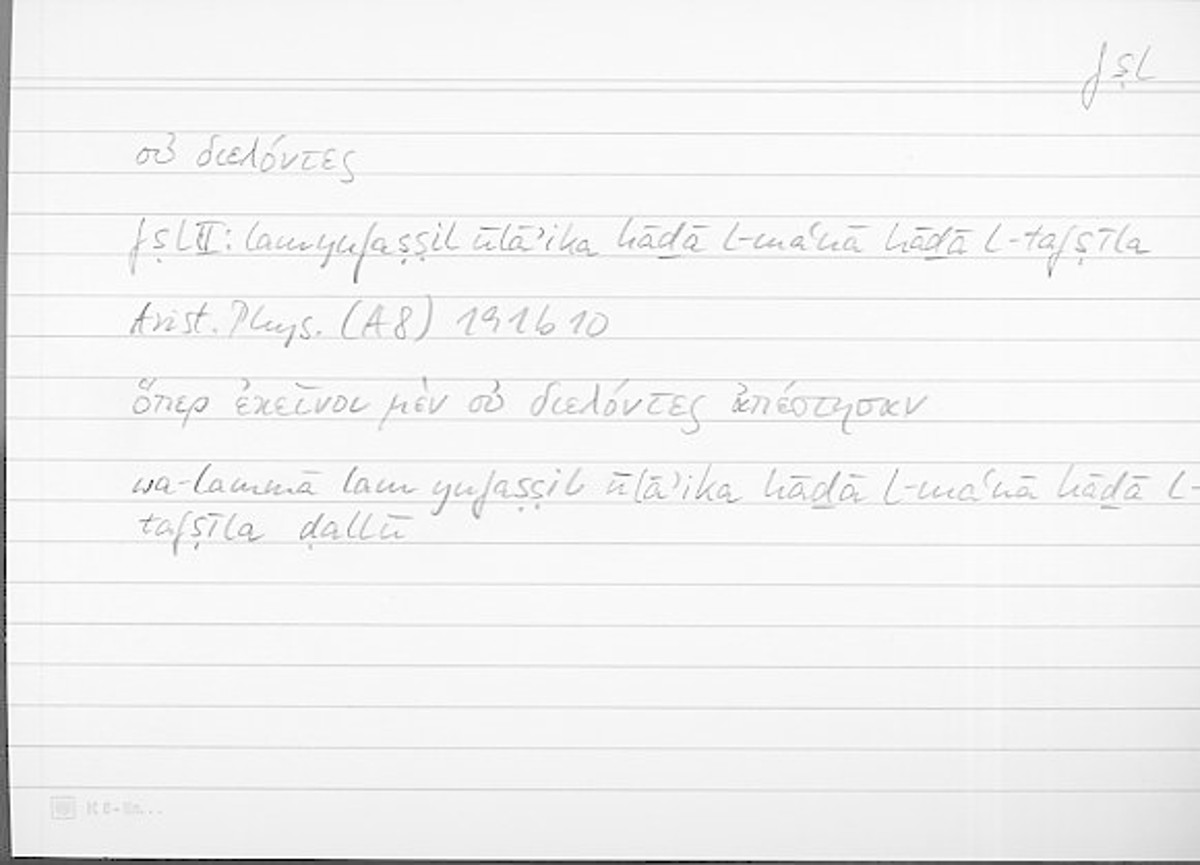 fṣl
οὐ διελόντες
fṣl II: lam yufaṣṣil ūlāʾika hāḏā l-maʿnā hāḏā l-tafṣīla
Arist. Phys. (A8) 191b10
ὅπερ ἐκεῖνοι μὲν οὐ διελόντες ἀπέστησαν
wa-lammā lam yufaṣṣil ūlāʾika hāḏā l-maʿnā hāḏā l-
tafṣīla ḍallū